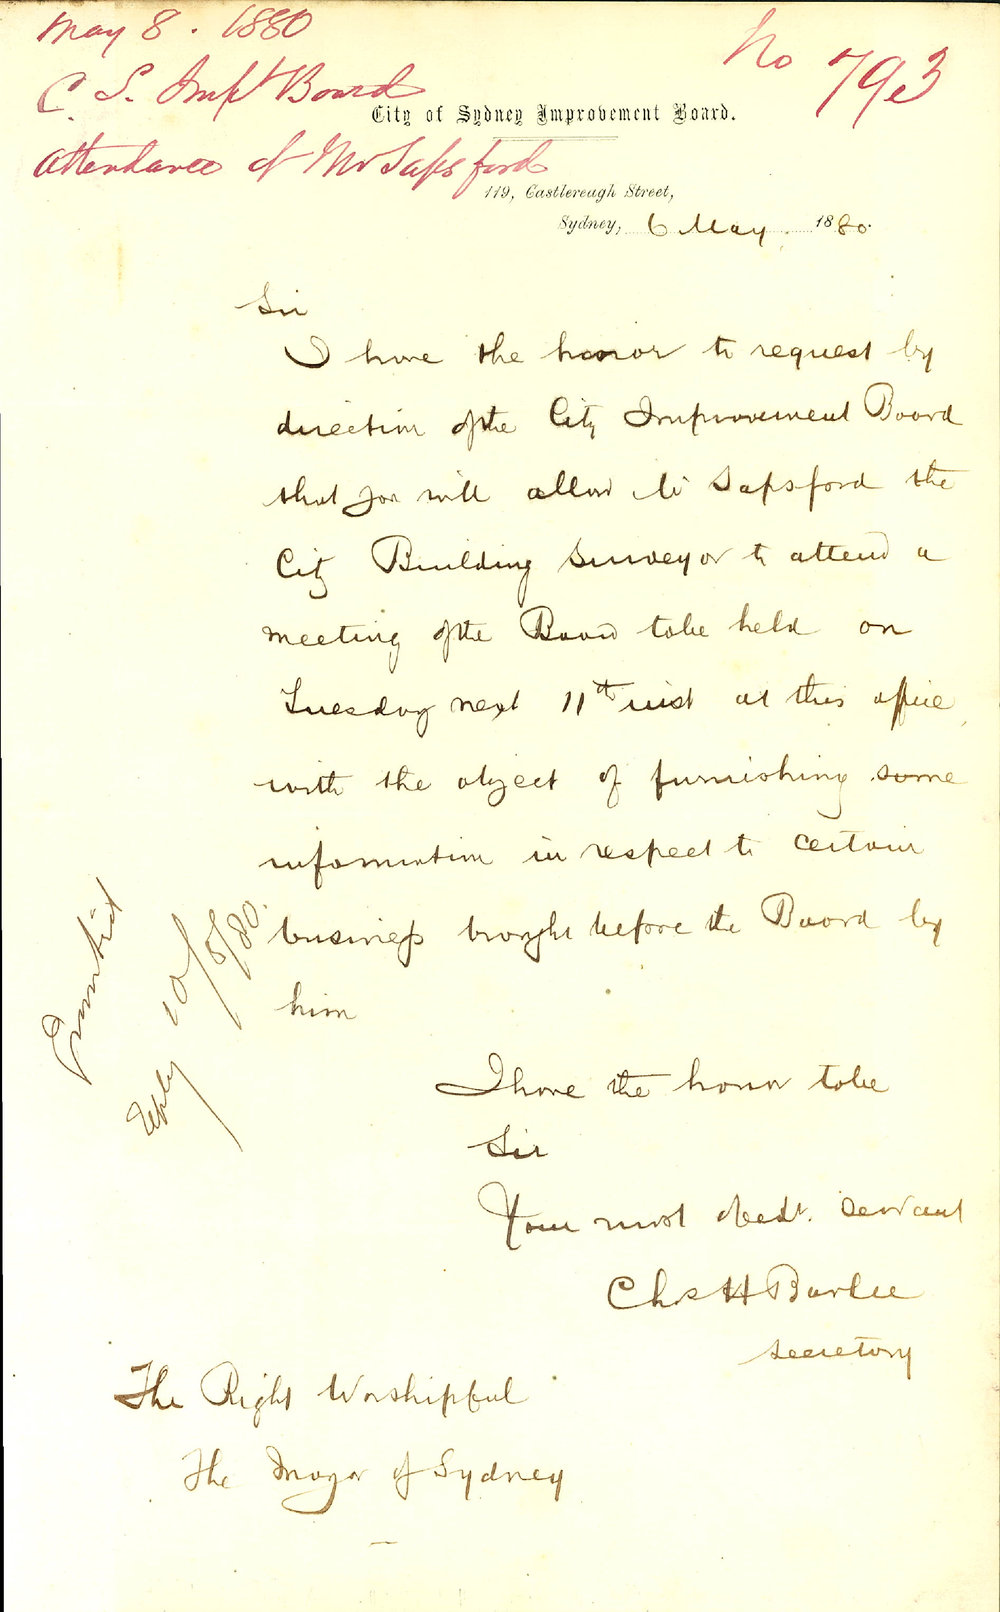 May 8. 1880
No 793
C. S. Impt Board
City of Sydney Improvement Board.
Attendance of Mr Sapsford
119, Castlereagh Street,
Sydney, 6 May 1880.
Sir
I have the honor to request by
direction of the City Improvement Board
that you will allow Mr Sapsford the
City Building Surveyor to attend a
meeting of the Board to be held on
Tuesday next 11th inst at this office
with the object of furnishing some
information in respect to certain
business brought before the Board by
him
I have the honor to be
Sir
Your most obedt. servant
Chas H Barlee
Secretary
The Right Worshipful
The Mayor of Sydney
Permitted
10/5/80.